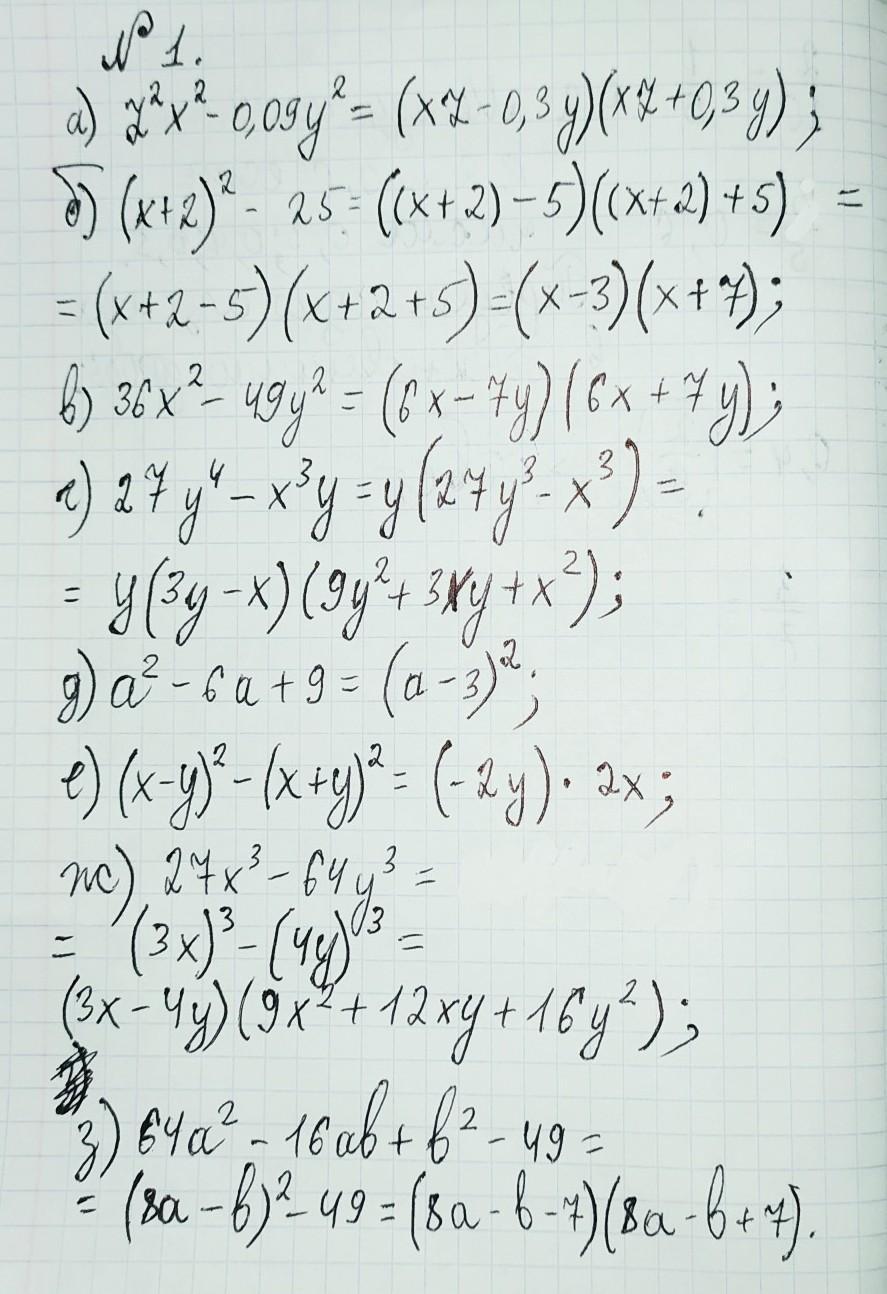 № 1.
а) z²x² - 0,09y² = (xz - 0,3y)(xz + 0,3y);
б) (x+2)² - 25 = ((x+2) - 5)((x+2) + 5) =
= (x+2-5)(x+2+5) = (x-3)(x+7);
в) 36x² - 49y² = (6x - 7y)(6x + 7y);
г) 27y⁴ - x³y = y(27y³ - x³) =
= y(3y - x)(9y² + 3xy + x²);
д) a² - 6a + 9 = (a - 3)²;
е) (x-y)² - (x+y)² = (-2y) · 2x;
ж) 27x³ - 64y³ =
= (3x)³ - (4y)³ =
(3x - 4y)(9x² + 12xy + 16y²);
з) 64a² - 16ab + b² - 49 =
= (8a - b)² - 49 = (8a - b - 7)(8a - b + 7).